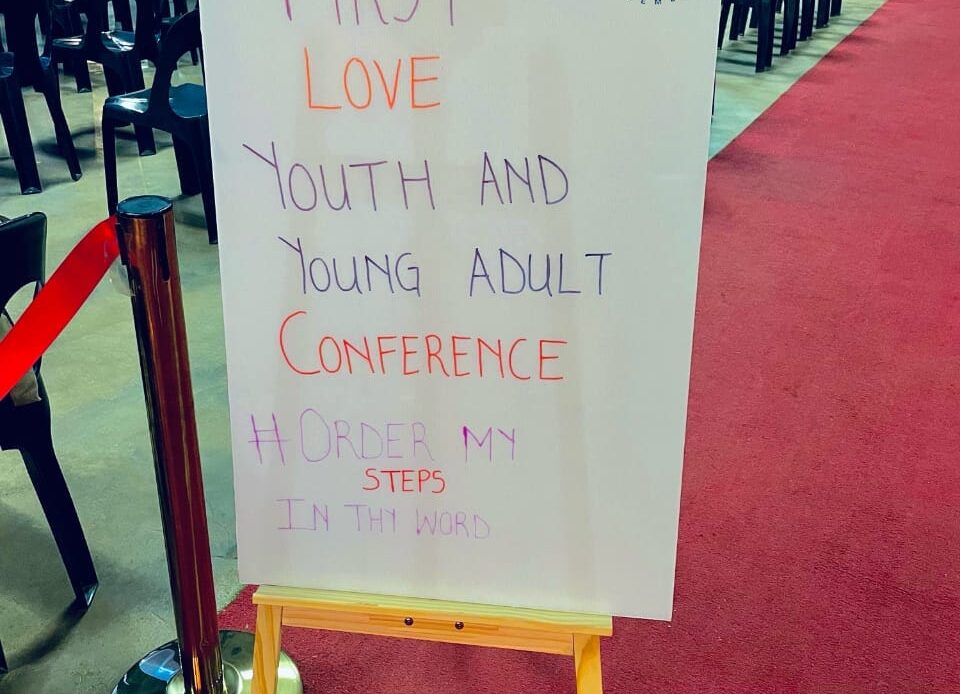 FIRST
LOVE
YOUTH AND
YOUNG ADULT
CONFERENCE
#ORDER MY
STEPS
IN THY WORD